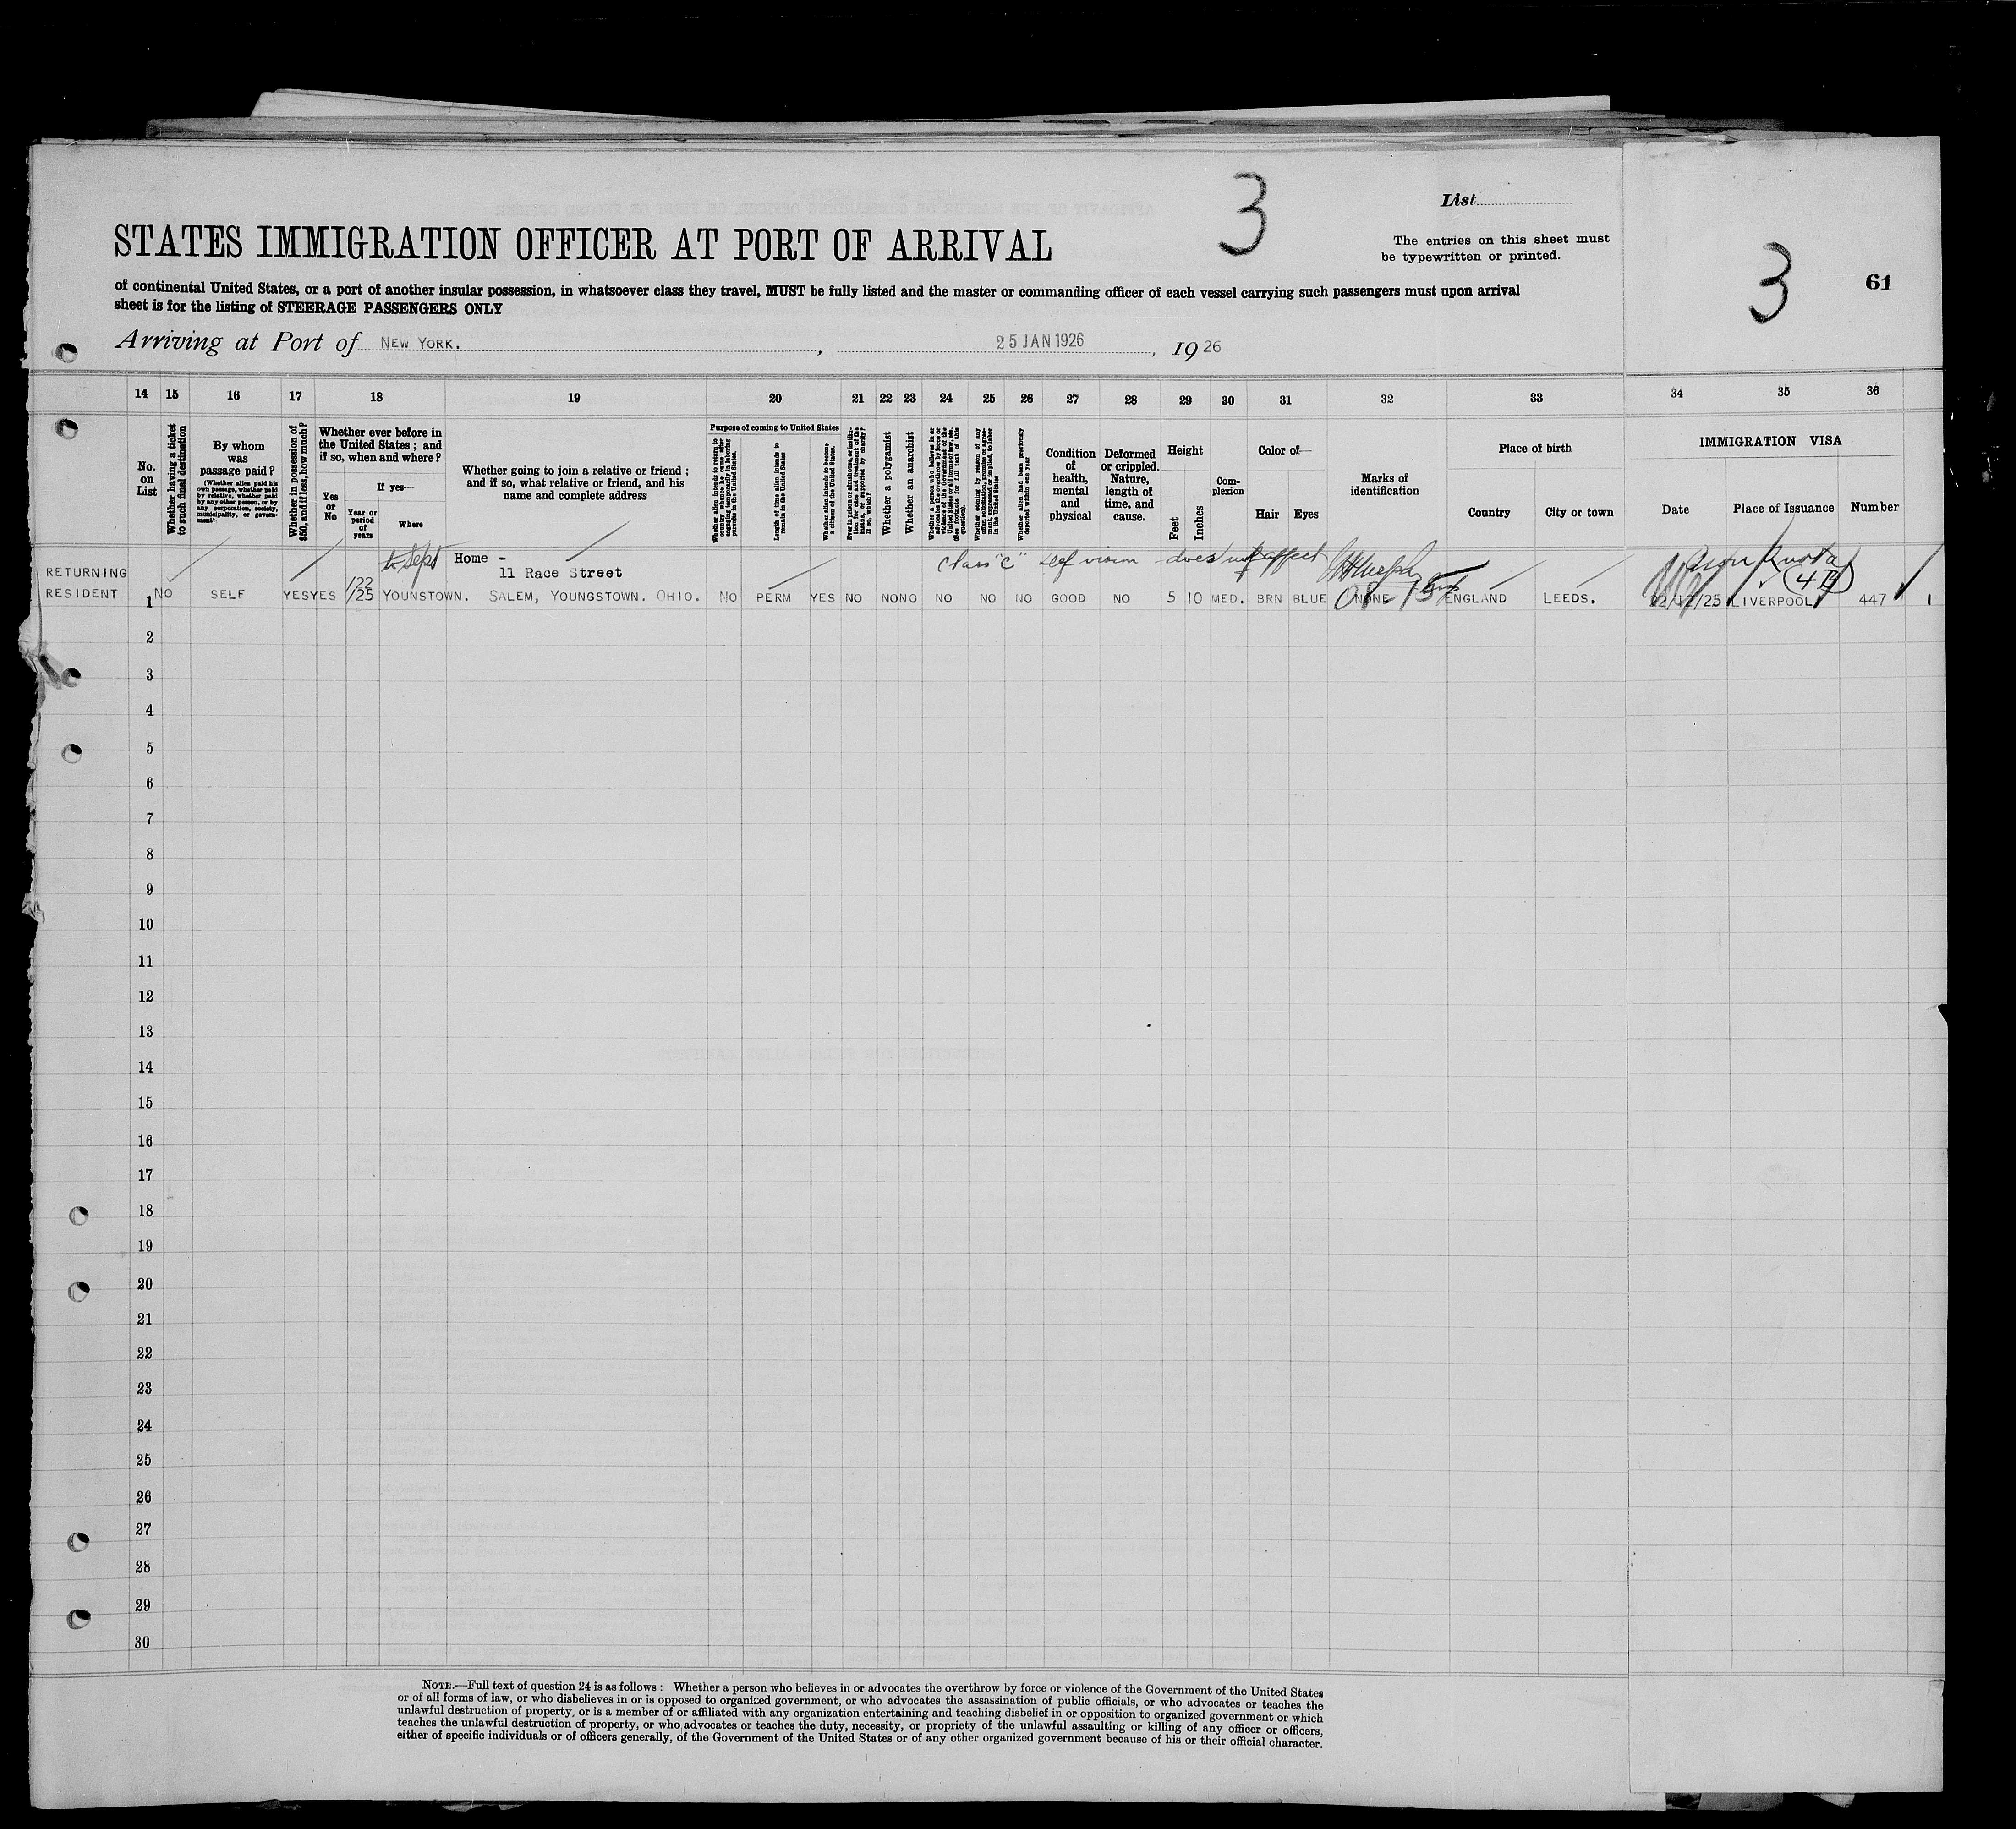 3
List
STATES IMMIGRATION OFFICER AT PORT OF ARRIVAL
The entries on this sheet must
be typewritten or printed.
3
61
of continental United States, or a port of another insular possession, in whatsoever class they travel, MUST be fully listed and the master or commanding officer of each vessel carrying such passengers must upon arrival
sheet is for the listing of STEERAGE PASSENGERS ONLY
Arriving at Port of NEW YORK. , 25 JAN 1926 , 1926
14 15 16 17 18 19 20 21 22 23 24 25 26 27 28 29 30 31 32 33 34 35 36
No. on List
Whether having a ticket to such final destination
By whom was passage paid?
(Whether alien paid his own passage, whether paid by relative, whether paid by any other person, or by any corporation, society, municipality, or government)
Whether in possession of $50, and if less, how much?
Whether ever before in the United States; and if so, when and where?
Yes or No
If yes—
Year or period of years
Where
Whether going to join a relative or friend; and if so, what relative or friend, and his name and complete address
Purpose of coming to United States
Whether alien intends to return to country whence he came after engaging temporarily in laboring pursuits in the United States
Length of time alien intends to remain in the United States
Whether alien intends to become a citizen of the United States.
Ever in prison or almshouse, or institution for care and treatment of the insane, or supported by charity? If so, which?
Whether a polygamist
Whether an anarchist
Whether a person who believes in or advocates the overthrow by force or violence of the Government of the United States or all forms of law, etc. (See footnote for full text of this question).
Whether coming by reason of any offer, solicitation, promise or agreement, expressed or implied, to labor in the United States
Whether alien had been previously deported within one year
Condition of health, mental and physical
Deformed or crippled. Nature, length of time, and cause.
Height
Feet
Inches
Complexion
Color of—
Hair
Eyes
Marks of identification
Place of birth
Country
City or town
IMMIGRATION VISA
Date
Place of Issuance
Number
to Sept
Home -
class "C" def vision - does not affect
Non Quota
RETURNING
11 Race Street
1/22
(4B)
RESIDENT 1 NO SELF YES YES 1/25 YOUNSTOWN. SALEM, YOUNGSTOWN. OHIO. NO PERM YES NO NO NO NO NO NO GOOD NO 5 10 MED. BRN BLUE NONE ENGLAND LEEDS. LIVERPOOL 447 1
2
3
4
5
6
7
8
9
10
11
12
13
14
15
16
17
18
19
20
21
22
23
24
25
26
27
28
29
30
NOTE.—Full text of question 24 is as follows: Whether a person who believes in or advocates the overthrow by force or violence of the Government of the United States
or of all forms of law, or who disbelieves in or is opposed to organized government, or who advocates the assassination of public officials, or who advocates or teaches the
unlawful destruction of property, or is a member of or affiliated with any organization entertaining and teaching disbelief in or opposition to organized government or which
teaches the unlawful destruction of property, or who advocates or teaches the duty, necessity, or propriety of the unlawful assaulting or killing of any officer or officers,
either of specific individuals or of officers generally, of the Government of the United States or of any other organized government because of his or their official character.